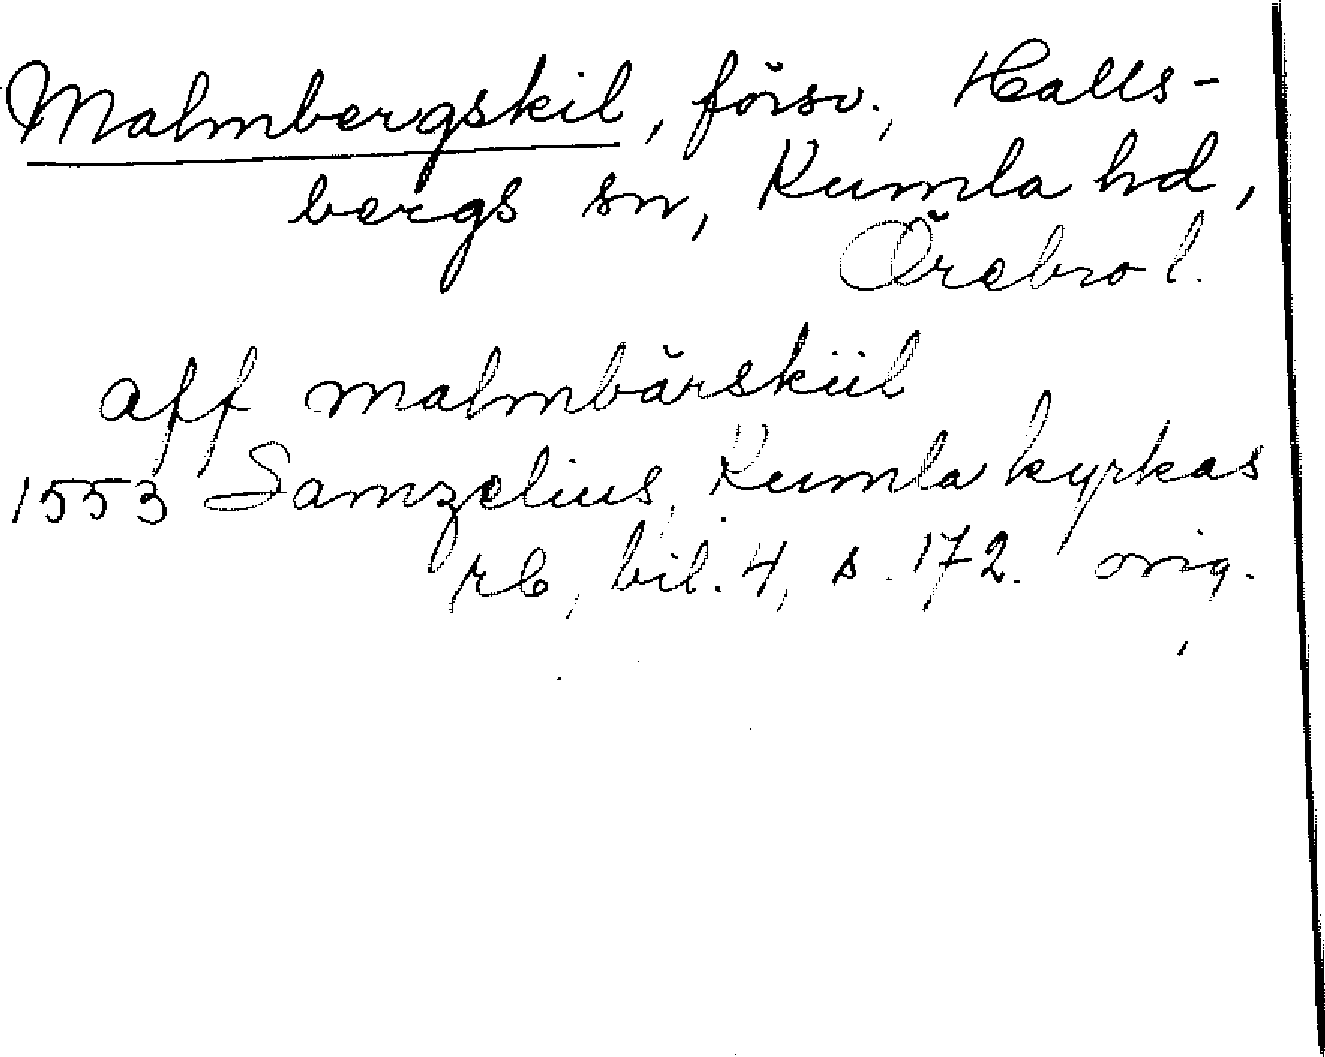 Malmbergskil, försv., Halls-
bergs sn, Kumla hd,
Örebro l.
aff malmbärskiil
1553 Samzelius, Kumla kyrkas
rb, bil. 4, s. 172. orig.